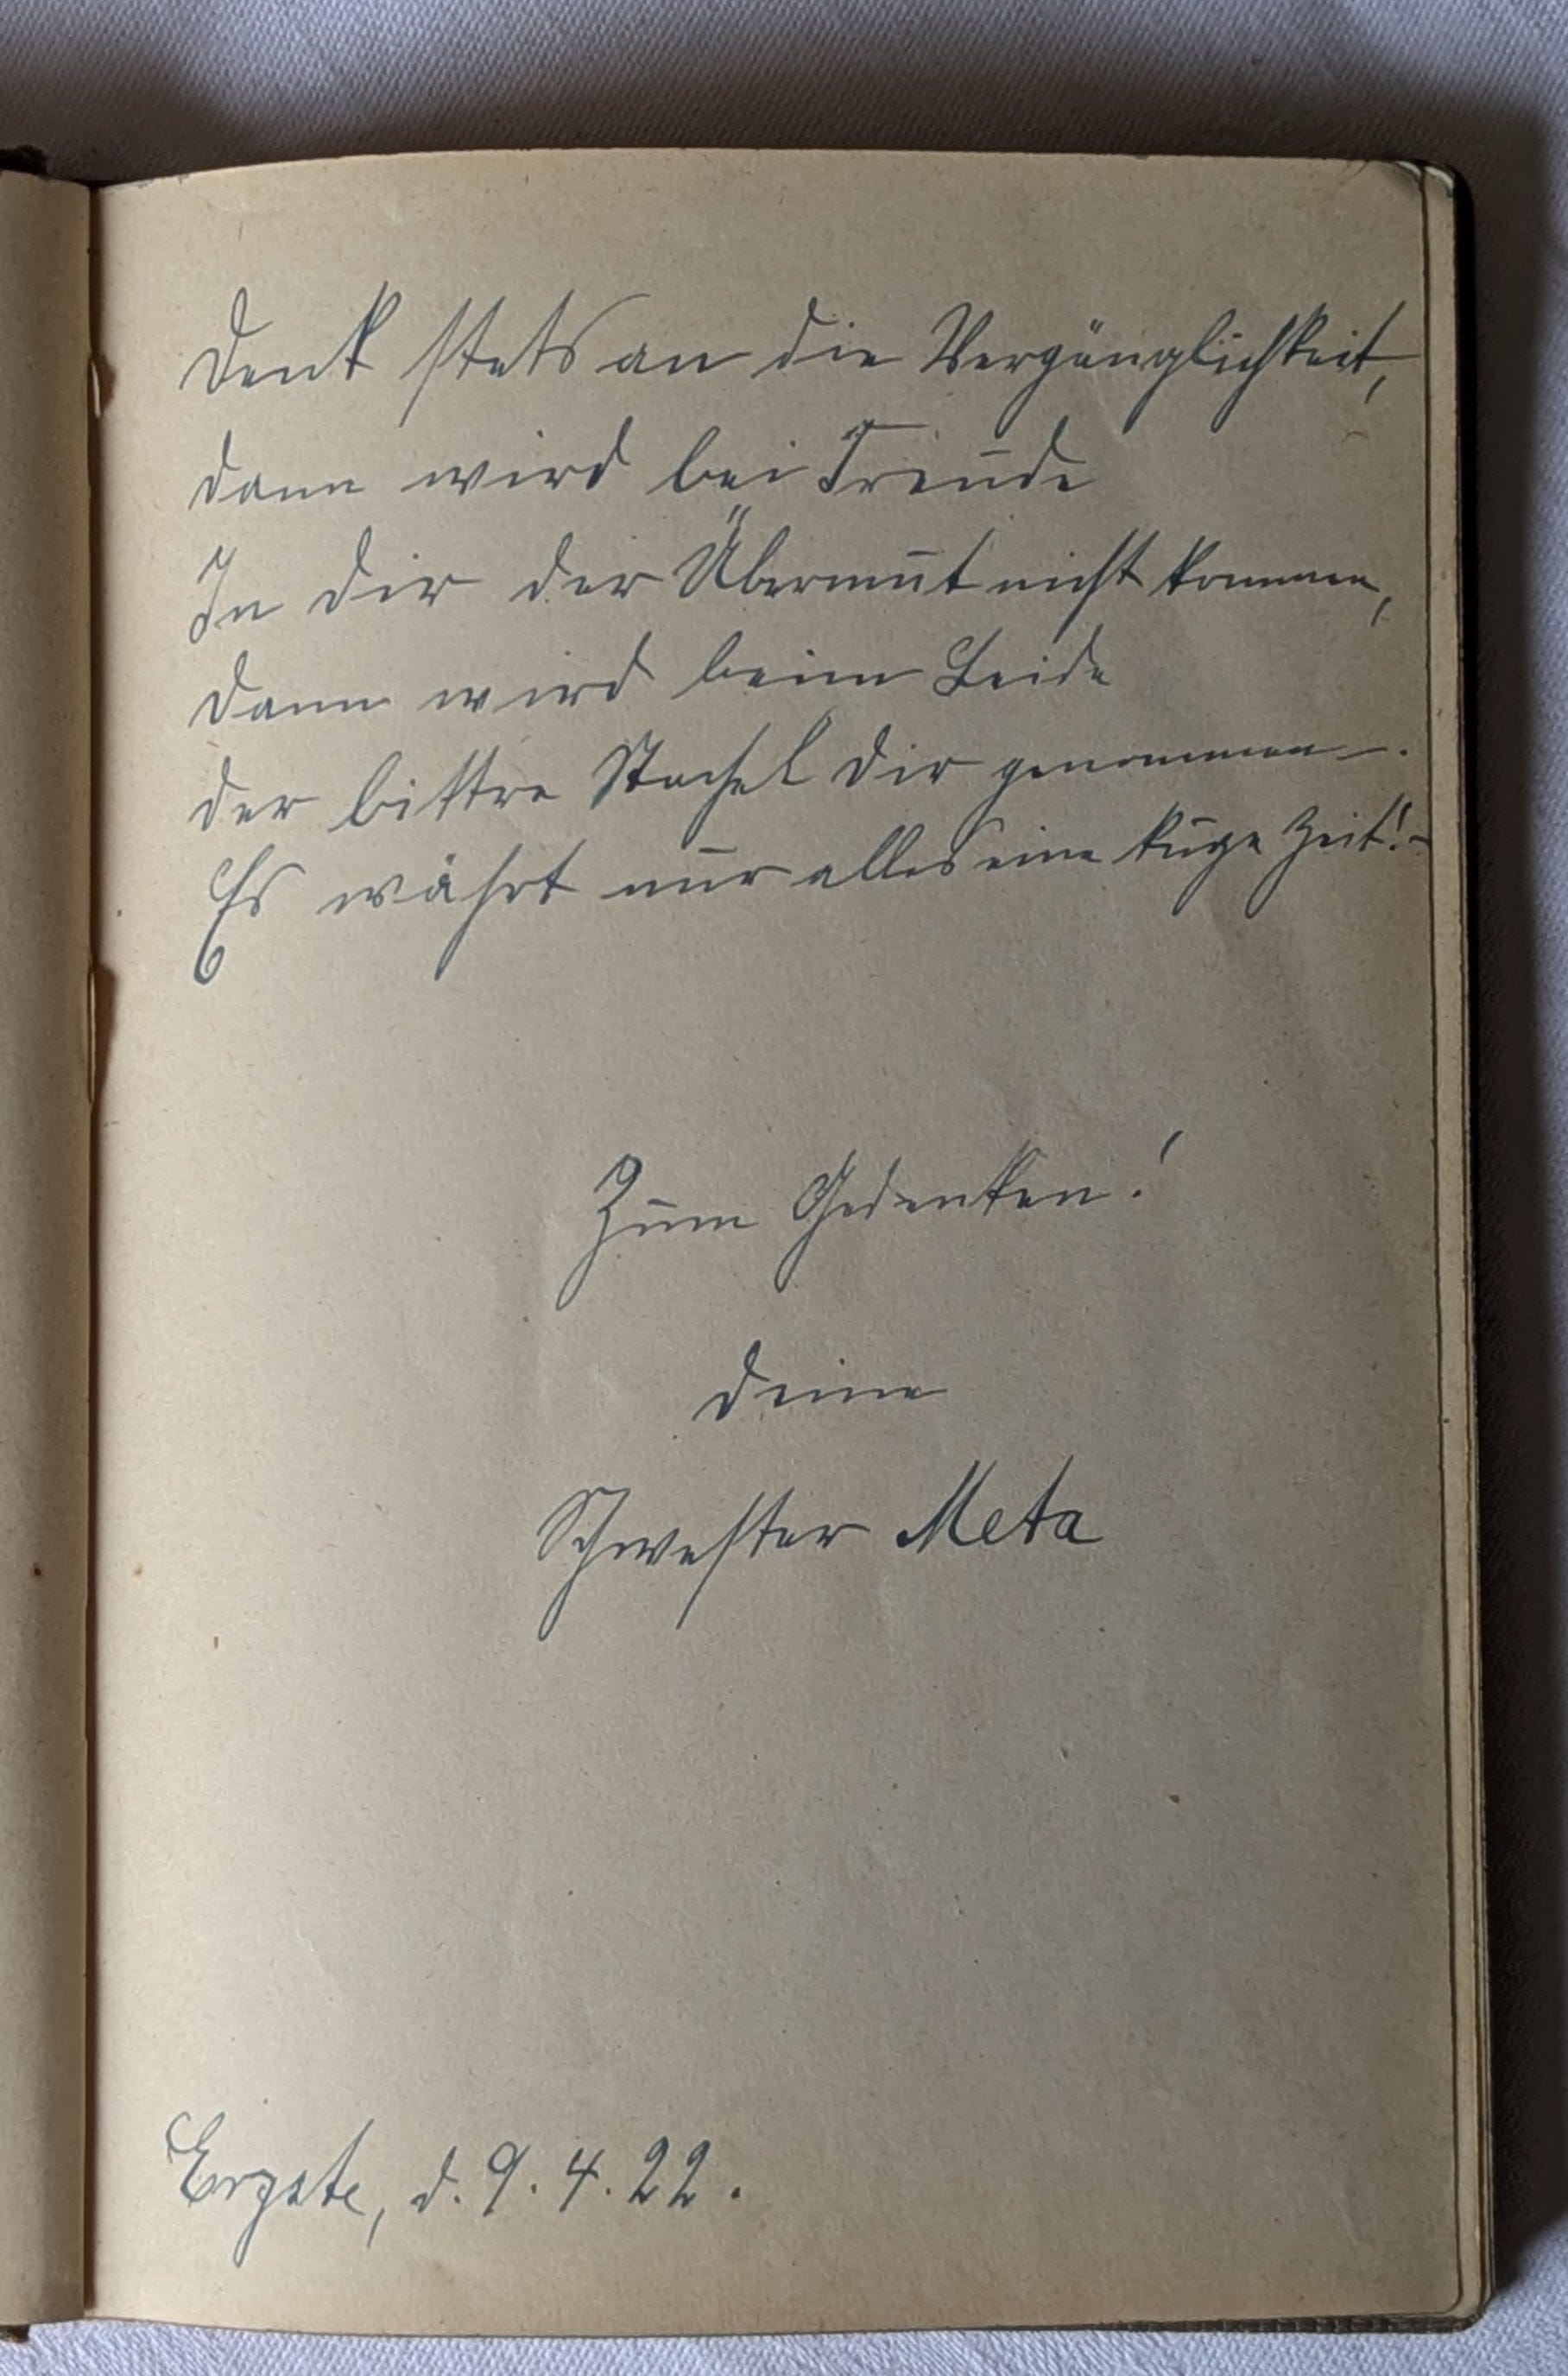 Denk stets an die Vergänglichkeit,
dann wird bei Freude
In dir der Übermut nicht kommen,
dann wird beim Leide
der bittre Stachel dir genommen.
Es währt nur alles eine kurze Zeit! -
Zum Gedenken!
deine
Schwester Meta
Ergste, d. 9. 4. 22.